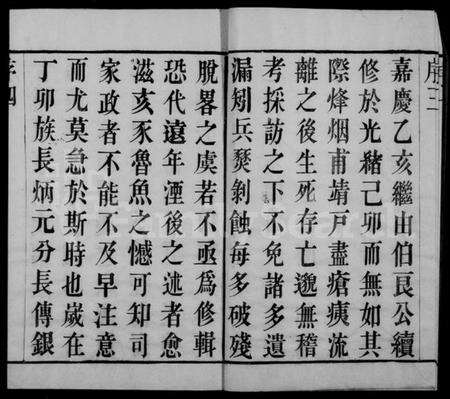 嘉慶乙亥繼由伯良公續
修於光緒己卯而無如其
際烽烟甫靖戸盡瘡痍流
離之後生死存亡邈無稽
考採訪之下不免諸多遺
漏矧兵燹剝蝕每多破殘
脫畧之虞若不亟爲修輯
恐代遠年湮後之述者愈
滋亥豕魯魚之憾可知司
家政者不能不及早注意
而尤莫急於斯時也歲在
丁卯族長炳元分長傳銀